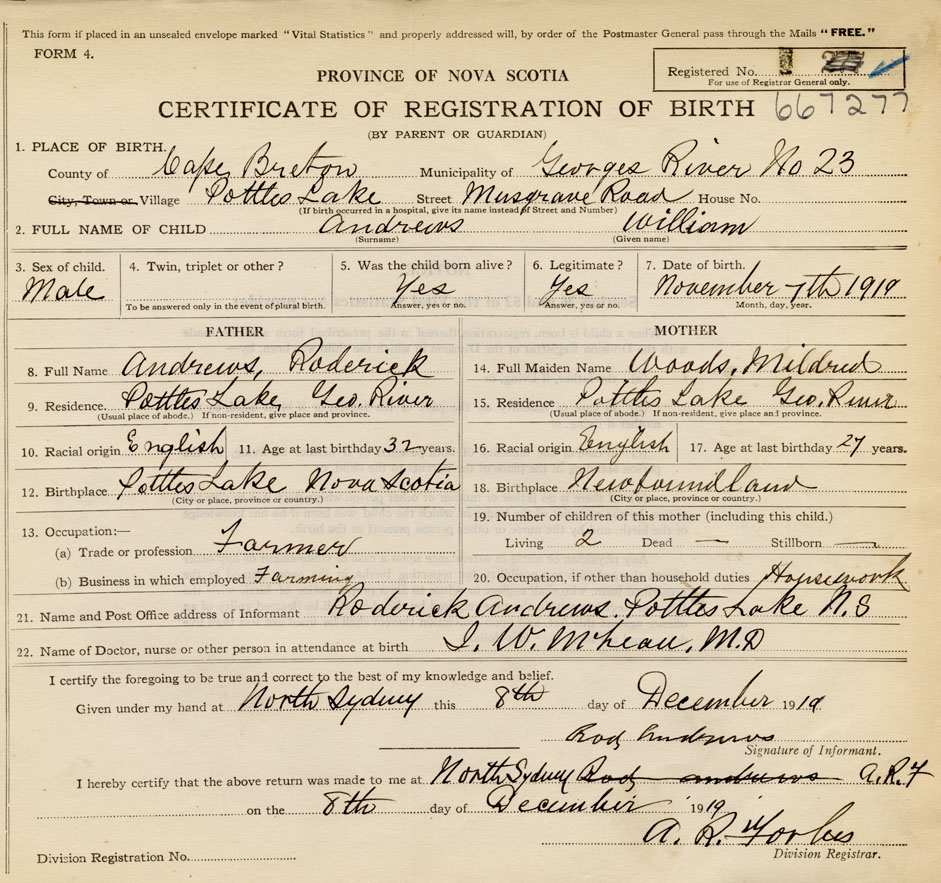 This form if placed in an unsealed envelope marked "Vital Statistics" and properly addressed will, by order of the Postmaster General pass through the Mails "FREE."
FORM 4.
Registered No.
For use of Registrar General only.
PROVINCE OF NOVA SCOTIA
CERTIFICATE OF REGISTRATION OF BIRTH 667277
(BY PARENT OR GUARDIAN)
1. PLACE OF BIRTH.
County of Cape Breton Municipality of Georges River No 23
City, Town or Village Pottles Lake Street Musgrave Road House No.
(If birth occurred in a hospital, give its name instead of Street and Number)
2. FULL NAME OF CHILD Andrews William
(Surname) (Given name)
3. Sex of child. 4. Twin, triplet or other? 5. Was the child born alive? 6. Legitimate? 7. Date of birth.
Male Yes Yes November 7th 1919
To be answered only in the event of plural birth. Answer, yes or no. Answer, yes or no. Month, day, year.
FATHER MOTHER
8. Full Name Andrews, Roderick 14. Full Maiden Name Woods, Mildred
9. Residence Pottles Lake, Geo. River 15. Residence Pottles Lake Geo. River
(Usual place of abode.) If non-resident, give place and province. (Usual place of abode.) If non-resident, give place and province.
10. Racial origin English 11. Age at last birthday 32 years. 16. Racial origin English 17. Age at last birthday 27 years.
12. Birthplace Pottles Lake Nova Scotia 18. Birthplace Newfoundland
(City or place, province or country.) (City or place, province or country.)
13. Occupation:— 19. Number of children of this mother (including this child.)
(a) Trade or profession Farmer Living 2 Dead — Stillborn —
(b) Business in which employed Farming 20. Occupation, if other than household duties Housework
21. Name and Post Office address of Informant Roderick Andrews. Pottles Lake N.S
22. Name of Doctor, nurse or other person in attendance at birth W. McLean, M.D
I certify the foregoing to be true and correct to the best of my knowledge and belief.
Given under my hand at North Sydney this 8th day of December 1919
Rod Andrews
Signature of Informant.
I hereby certify that the above return was made to me at North Sydney Rod andrews A.R.F
on the 8th day of December 1919
A. R. Forbes
Division Registrar.
Division Registration No.